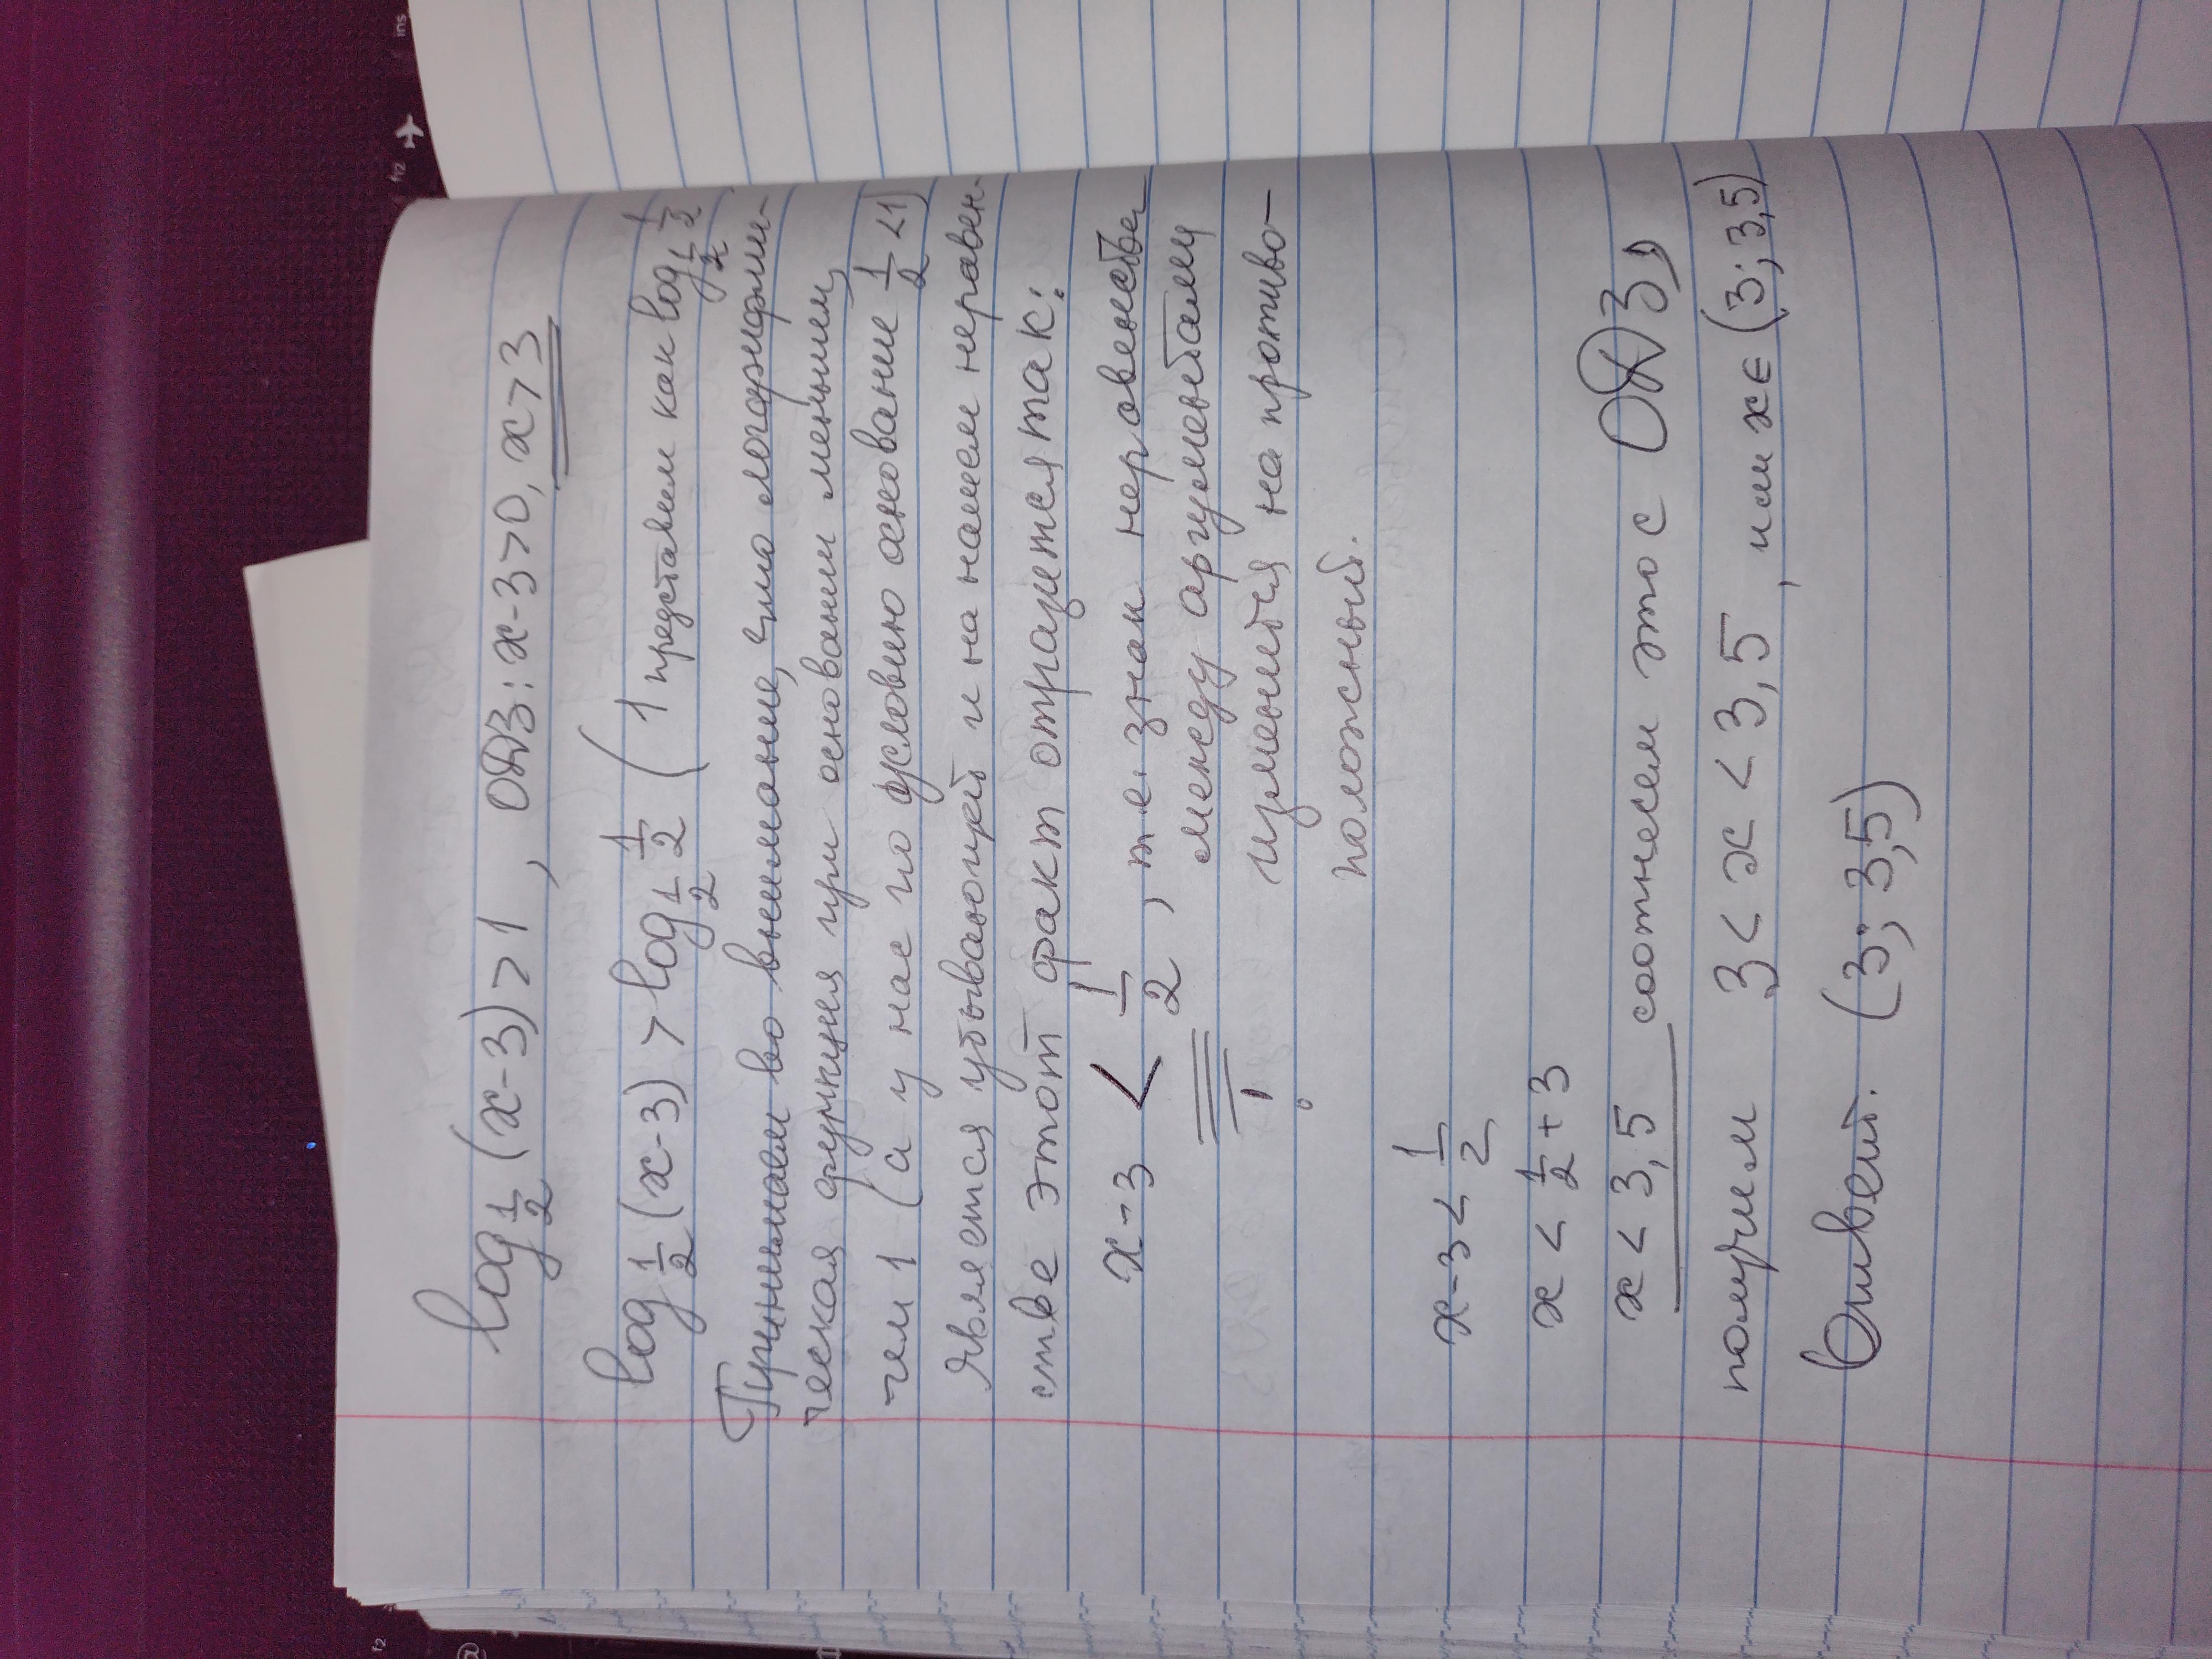 log 1/2 (x-3) > 1 , ОДЗ: x-3>0, x>3
log 1/2 (x-3) > log 1/2 1/2 (1 представим как log 1/2 1/2
Принимаем во внимание, что логарифми-
ческая функция при основании меньшем,
чем 1 (а у нас по условию основание 1/2 <1)
является убывающей и на нашем неравен-
стве этот факт отразится так:
x-3 < 1/2 , т.е. знак неровенства
между аргументами
изменится на противо-
положный.
x-3 < 1/2
x < 1/2 + 3
x < 3,5 соотнесем это с ОДЗ,
получим 3 < x < 3,5 , или x∈(3; 3,5)
Ответ. (3; 3,5)
f2
@
f12
ins